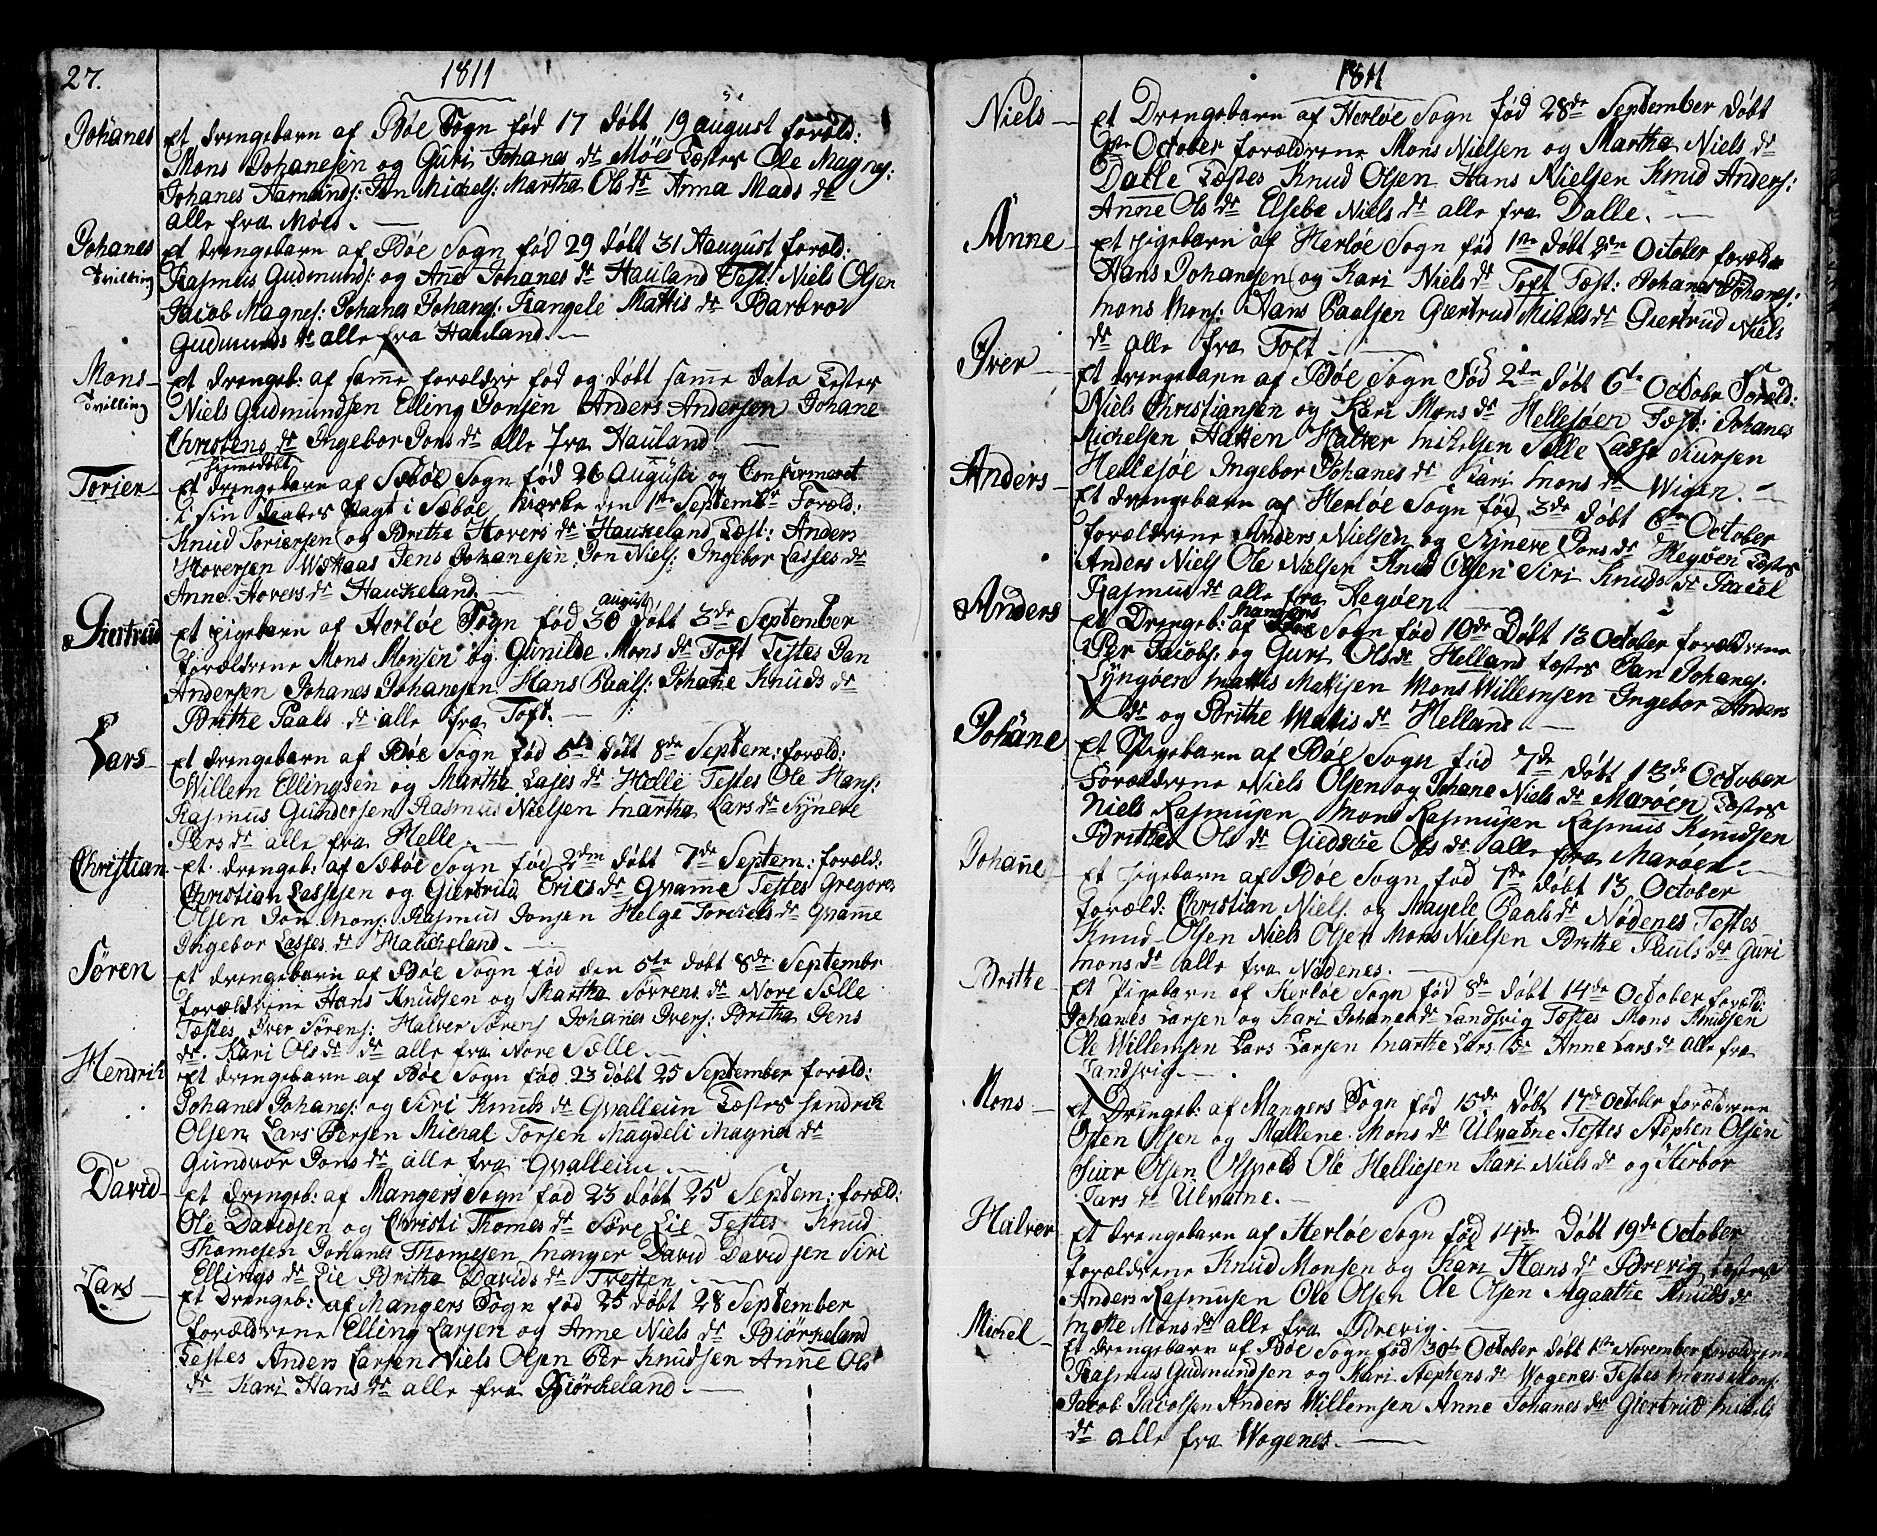 27.
1811
Johanes
Et drengebarn af Bøe Sogn fød 17 døbt 19 august foræld:
Mons Johanesen og Guri Johanes dr Møes Testes Ole Magnes:
Johanes Aamunds: Jon Michels: Martha Ols dr Anna Mads dr
alle fra Møes.
Johanes
Tvilling
Et drengebarn af Bøe Sogn fød 29 døbt 31 August foræld:
Rasmus Gudmunds: og Ane Johanes dr Hauland Test: Niels Olsen
Jacob Magnes: Johana Johans: Rangele Mattis dr Barbro
Gudmunds dr alle fra Hauland.
Mons
Tvilling
Et drengeb: af samme forældre fød og døbt samme Data Testes
Niels Gudmundsen Elling Jonsen Anders Andersen Johane
Christens dr Ingebor Jons dr alle fra Hauland
Torier
hjemedøbt
Et drengebarn af Sæbøe Sogn fød 26 Augusti og Confirmeret
i sin Daabes Pagt i Sæbøe Kiærke den 1te September Foræld:
Knud Toriersen og Britha Hovers dr Haukeland Test: Anders
Hoversen Jens Johanesen Jon Niels: Ingebor Lasses dr
Anne Hovers dr Haukeland
Giertrud
august
Et pigebarn af Herløe Sogn fød 30 døbt 3de September
forældrene Mons Monsen og Gunilde Mons dr Toft Testes Jan
Andersen Johanes Johanesen Hans Paals: Johane Knuds dr
Brithe Paals dr alle fra Toft.
Lars
Et drengebarn af Bøe Sogn fød 5te døbt 8de Septem: foræld:
Willem Ellingsen og Martha Lasses dr Helle Testes Ole Hans:
Rasmus Gundersen Rasmus Nielsen Martha Lars dr Syneve
Pers dr alle fra Helle.
Christian
Et drengeb: af Sæbøe Sogn fød 2den døbt 7de Septem: foræld:
Christian Lassesen og Giertrud Erics dr Qvamme Testes Gregores
Olsen Jon Mons: Rasmus Jonsen Helge Torckels dr Qvamme
Ingebor Lasses dr Hauckeland.
Søren
Et drengebarn af Bøe Sogn fød den 5te døbt 8de Septembr
forældrene Hans Knudsen og Martha Sørrens dr Nore Sælle
Testes Iver Sørens: Halver Sørens Johanes Ivers: Britha Jens
dr. Kari Ols dr alle fra Nore Sælle.
Hendrich
Et drengebarn af Bøe Sogn fød 23 døbt 25 September foræld:
Johanes Johanes: og Siri Knuds dr Qvalleim Testes Hendrich
Olsen Lars Persen Michal Torsen Magdeli Magnes dr
Gundvor Jons dr alle fra Qvalleim.
David
Et drengeb: af Mangers Sogn fød 23 døbt 25 Septem: foræld:
Ole Davidsen og Christi Thomes dr Søre Lie Testes Knud
Thomesen Johanes Thomesen Manger David Davidsen Siri
Ellings dr Lie Britha Davids dr Tvejten
Lars
Et Drengeb: af Mangers Sogn fød 25 døbt 28 September
forældrene Elling Larsen og Anne Niels dr Biørckeland
Testes Anders Larsen Niels Olsen Per Knudsen Anne Ols
dr Kari Hans dr alle fra Biørckeland.
1811
Niels
Et Drengebarn af Herløe Sogn fød 28de September døbt
October forældrene Mons Nielsen og Martha Niels dr
Dalle Testes Knud Olsen Hans Nielsen Knud Anders:
Anne Ols dr Elsebe Niels dr alle fra Dalle.
Anne
Et pigebarn af Herløe Sogn fød 1te døbt October foræld:
Hans Johanesen og Kari Niels dr Toft Test: Johanes Johanes:
Mons Mons: Hans Paalsen Giertrud Michels dr Giertrud Niels
dr alle fra Toft.
Iver
Et drengebarn af Bøe Sogn Fød 2de døbt 6te October Foræld:
Niels Christiansen og Kari Mons dr Hellesøen Test: Johanes
Michelsen Hatten Halver Mikelsen Sælle Lasse Siursen
Hellesøe Ingebor Johanes dr Kari Mons dr Wigen.
Anders
Et drengebarn af Herløe Sogn fød 3de døbt 6te October
forældrene Anders Nielsen og Syneve Jons dr Hegøen Testes
Anders Niels Ole Nielsen Knud Olsen Siri Knuds dr Rachel
Rasmus dr alle fra Hegøen
Anders
Mangers
Et Drengeb: af Sogn fød 10de Døbt 13 October forældrene
Per Jacobs: og Guri Ols dr Helland Testes Jan Johanes:
Lyngøen Mattis Matisen Mons Willemsen Ingebor Anders
dr og Brithe Matis dr Helland.
Johane
Et Pigebarn af Bøe Sogn fød 7de døbt 13de October
Forældrene Niels Olsen og Johane Niels dr Marøen Testes
Niels Rasmusen Mons Rasmusen Rasmus Knudsen
Brithe Ols dr Giedske Ols dr alle fra Marøen.
Johanne
Et Pigebarn af Bøe Sogn fød 7de døbt 13 October
foræld: Christian Niels. og Magele Paals dr Nødenes Testes
Knud Olsen Niels Olsen Mons Nielsen Brithe Pauls dr Guri
Mons dr alle fra Nødenes.
Britte
Et Pigebarn af Herløe Sogn fød 8de døbt 14de October foræld:
Johanes Larsen og Kari Johanes dr Landsvig Testes Mons Knudsen
Ole Willemsen Lars Larsen Marthe Lars dr Anne Lars dr alle fra
Landsvig.
Mons
Et Drengeb: af Mangers Sogn fød 15de døbt 17de October forældrene
Osten Olsen og Mallene Mons dr Ulvatne Testes Stephen Olsen
Siur Olsen Ole Helliesen Kari Niels dr og Herbor
Lars dr Ulvatne.
Halver
Et drengebarn af Herløe Sogn fød 14de Døbt 19de October
forældrene Knud Monsen og Kari Hans dr Brevig Testes
Anders Rasmusen Ole Olsen Ole Olsen Agaathe Knuds dr
Mette Mons dr alle fra Brevig.
Michel
Et drengebarn af Bøe Sogn fød 30te October døbt 1te November forældrene
Rasmus Gudmundsen og Kari Stephens dr Wogenes Testes Mons Mons:
Jacob Jacobsen Anders Willemsen Anne Johanes dr Giertrud Mikels
dr alle fra Wogenes.